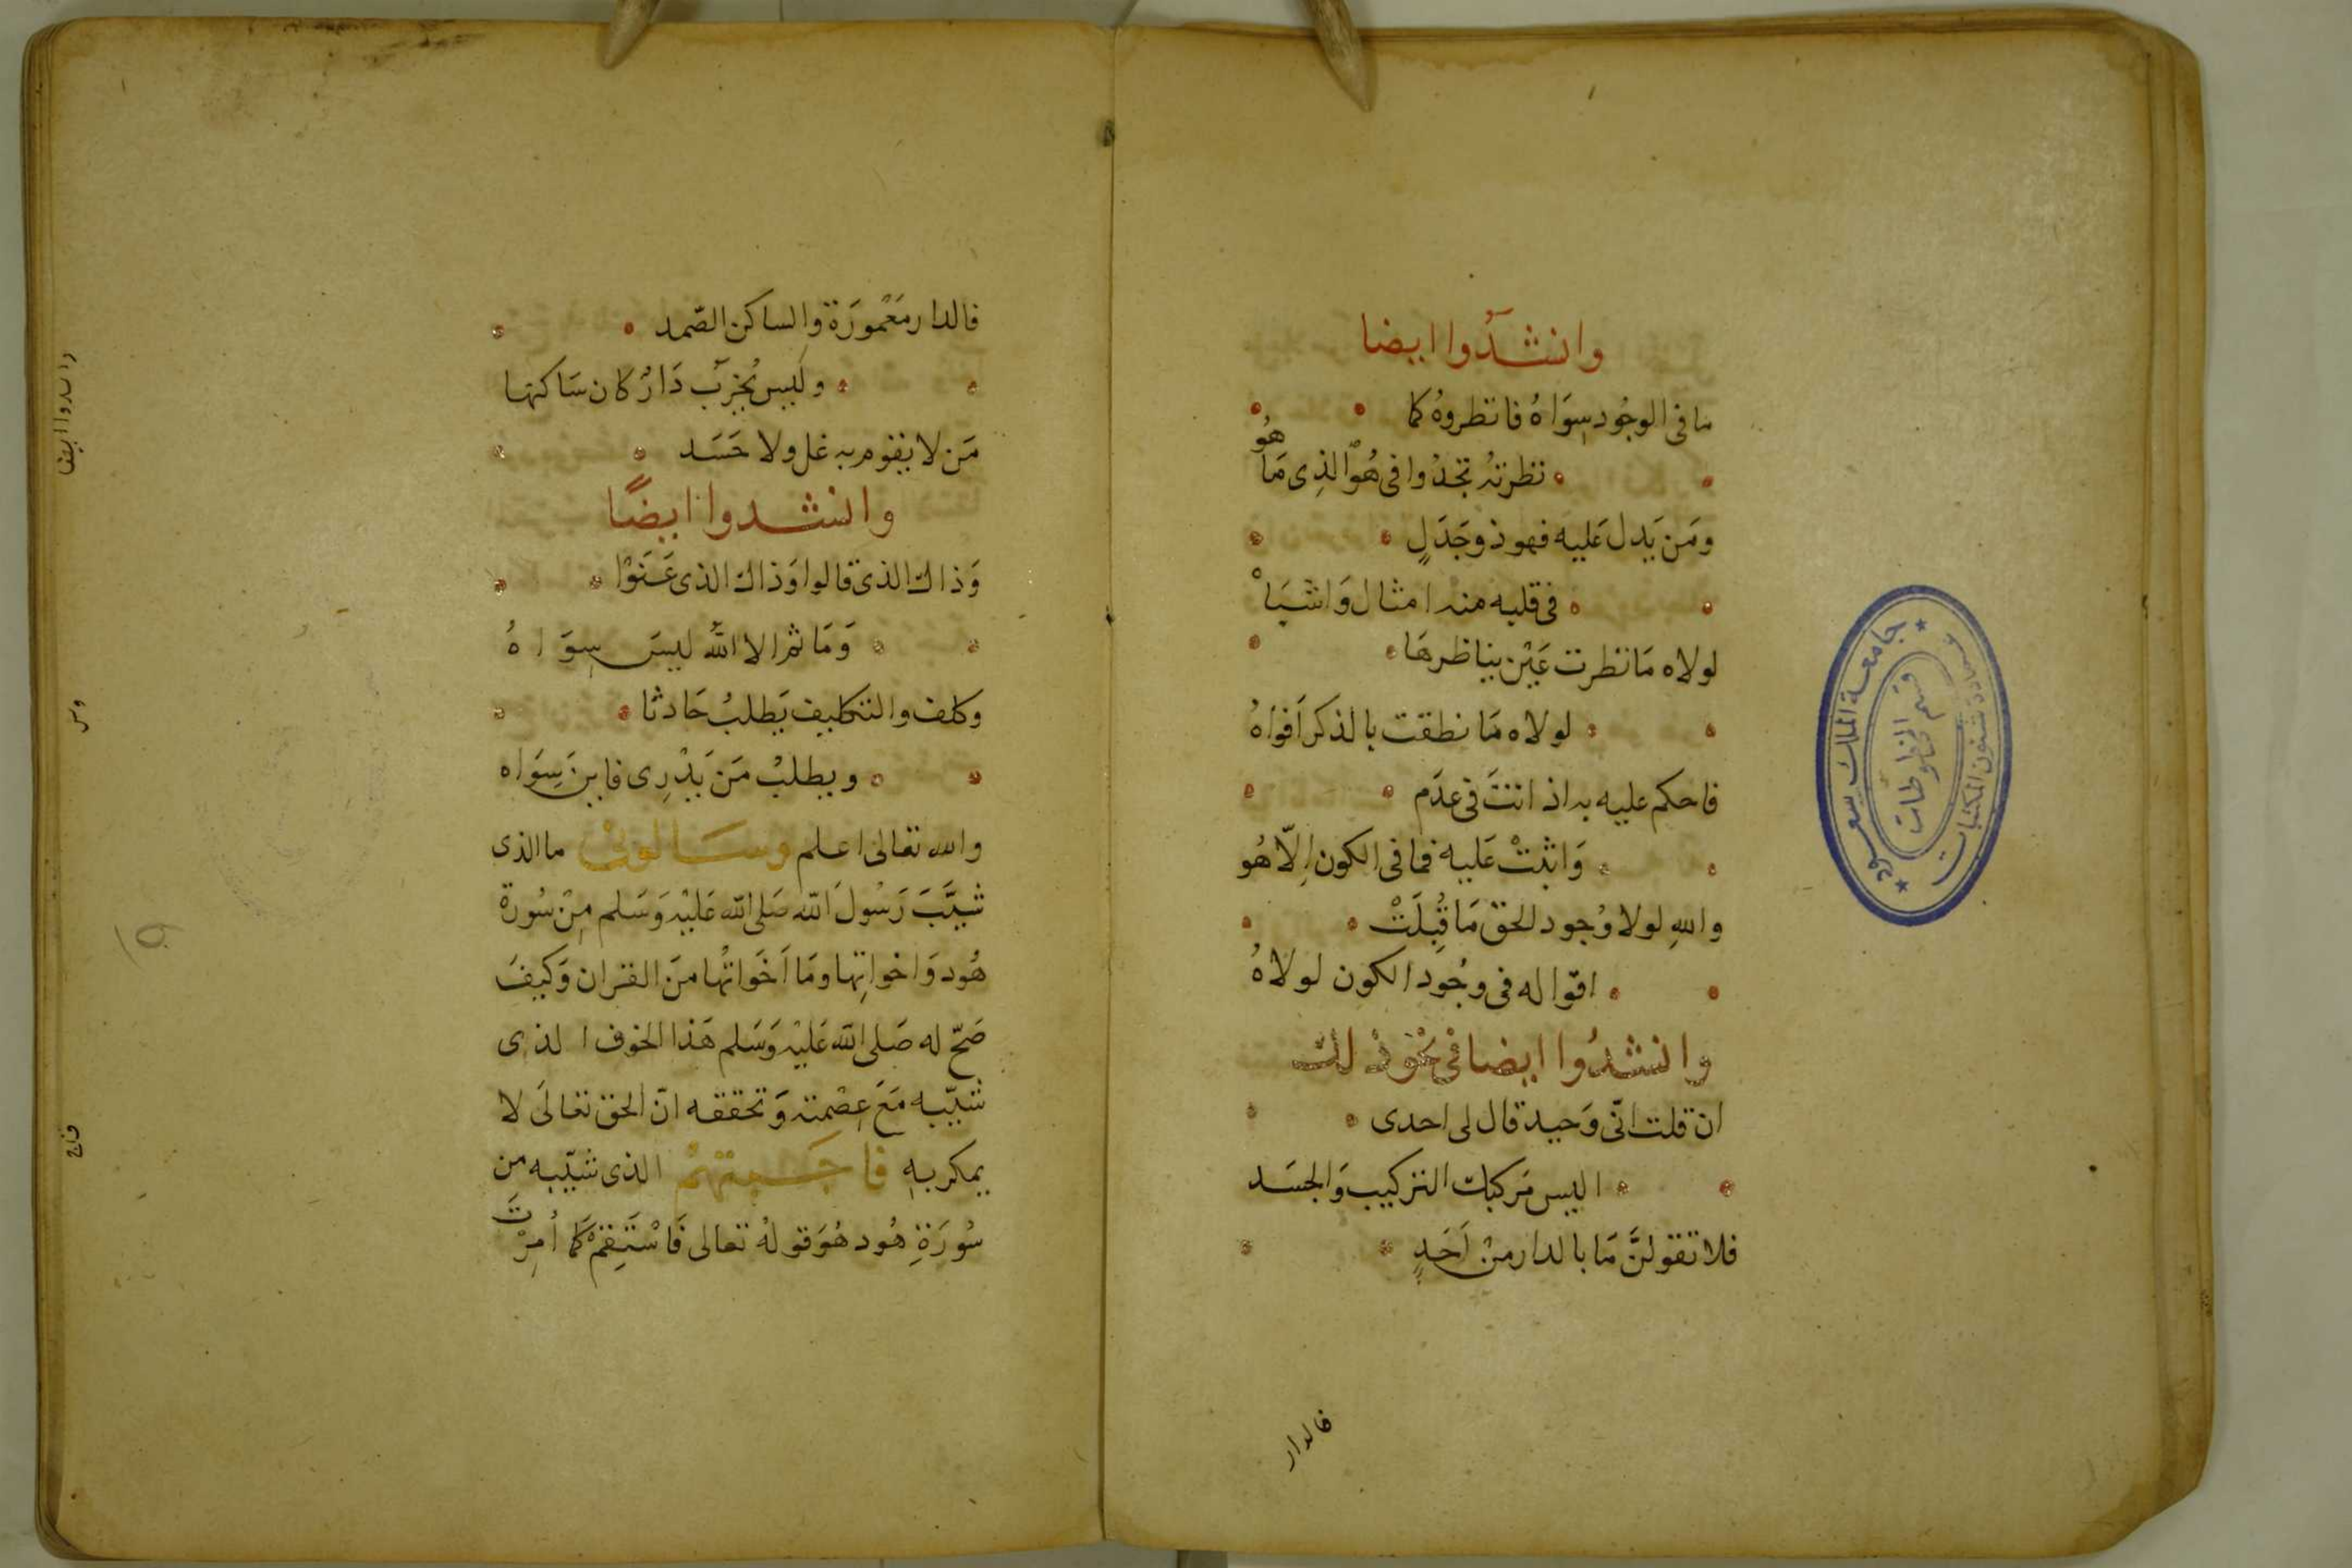 وانشدوا ايضا
ما فى الوجُود سِوَاهُ فانظروهُ كما
نظرتهُ تجدُوا فى هُوَ الذِى مَا هُو
ومَن يَدل عَليه فهو ذو جَدَلٍ
فى قلبه منه امثال وَاشبَاهْ
لولاه مَا نظرت عَيْن بناظرهَا
لولاه مَا نطقت بالذكر اَفواهُ
فاحكم عليه به اذ انتَ فى عدَم
وَاثبتْ عَليه فما فى الكون اِلّا هُو
واللهِ لولا وُجود الحق مَا قُبِلَتْ
اقوالهُ فى وجُود الكون لولاهُ
وانشدُوا ايضا فى نحْو ذلك
ان قلت انّى وَحيد قال لى احدى
اليس مَركبك التركيب وَالجسَد
فلا تقولنَّ مَا بالدار مِنْ اَحَدٍ
فالدار
جامعة الملك سعود
عمادة شئون المكتبات
قسم المخطوطات
فالدار مَعْمورَة والساكن الصّمد
ولَيس تخربَ دَارٌ كان سَاكنها
مَن لا يقوم به غل ولا حَسَد
وانشدوا ايضًا
وَذاك الذى قالوا وَذاك الذى عَنَوْا
وَمَا ثم الا اللهُ ليسَ سِوَاهُ
وكلف والتكليف يَطلبُ حَادثا
ويطلبُ مَن يَدْرِى فاينَ سِوَاه
والله تعالى اعلم وسَالونى ما الذى
شيَّبَ رَسُولَ الله صَلى الله عَليْه وَسَلم مِنْ سُورة
هُود وَاخواتِها ومَا اَخَواتُها منَ القران وَكيفَ
صَحّ له صَلى الله عَليْه وَسَلم هَذا الخوف الذى
شيّبه مَعَ عِصْمته وَتحققه انّ الحق تعالَى لا
يمكر بهِ فاجَبتهمْ الذى شيّبه من
سُورَةِ هُود هُوَ قولهُ تعالى فَاسْتَقِمْ كمَا اُمِرْتَ
وانشدوا ايضا